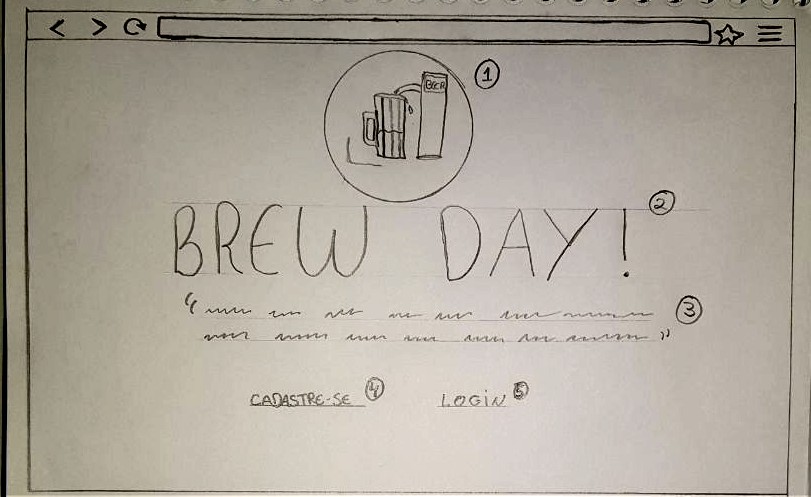 BEER
1
BREW DAY! 2
3
CADASTRE-SE 4 LOGIN 5